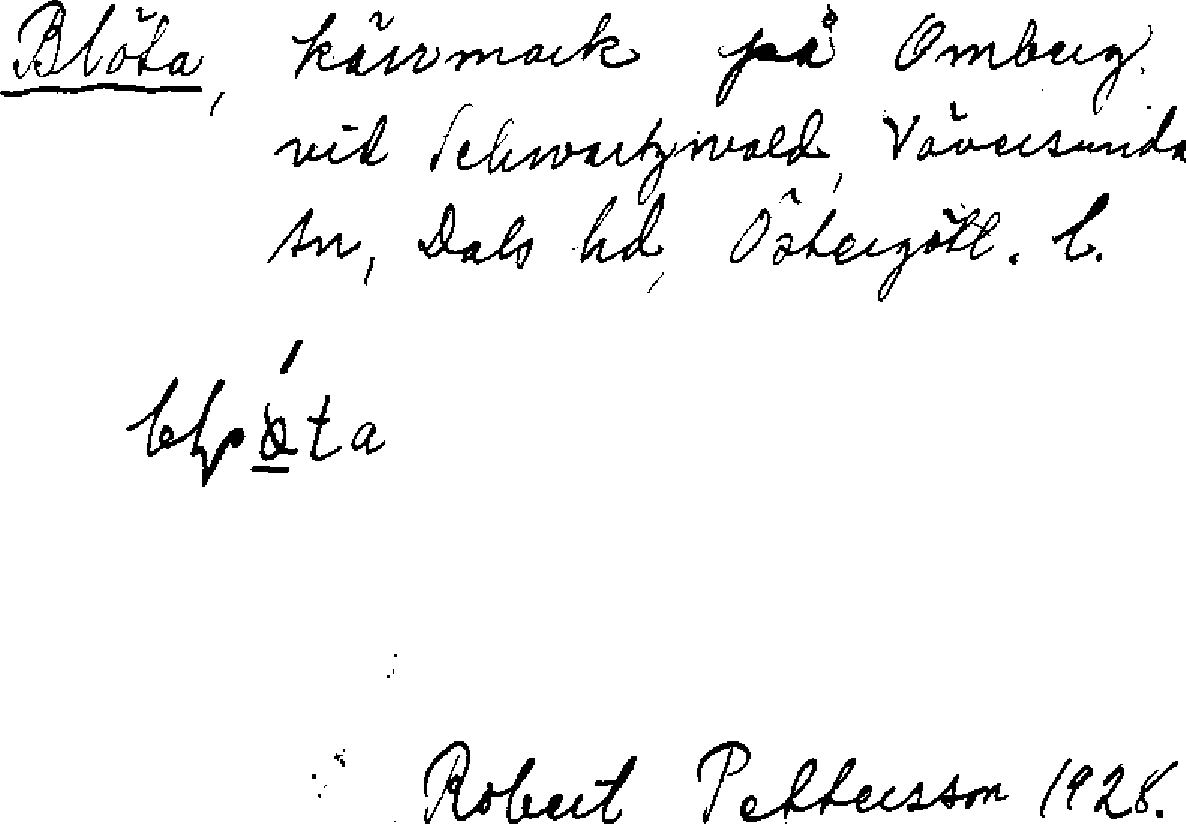 Blöta, kärrmark på Omberg.
vid Schwartzwald, Väversunda
sn, Dals hd, Östergötl. l.
Robert Pettersson 1928.